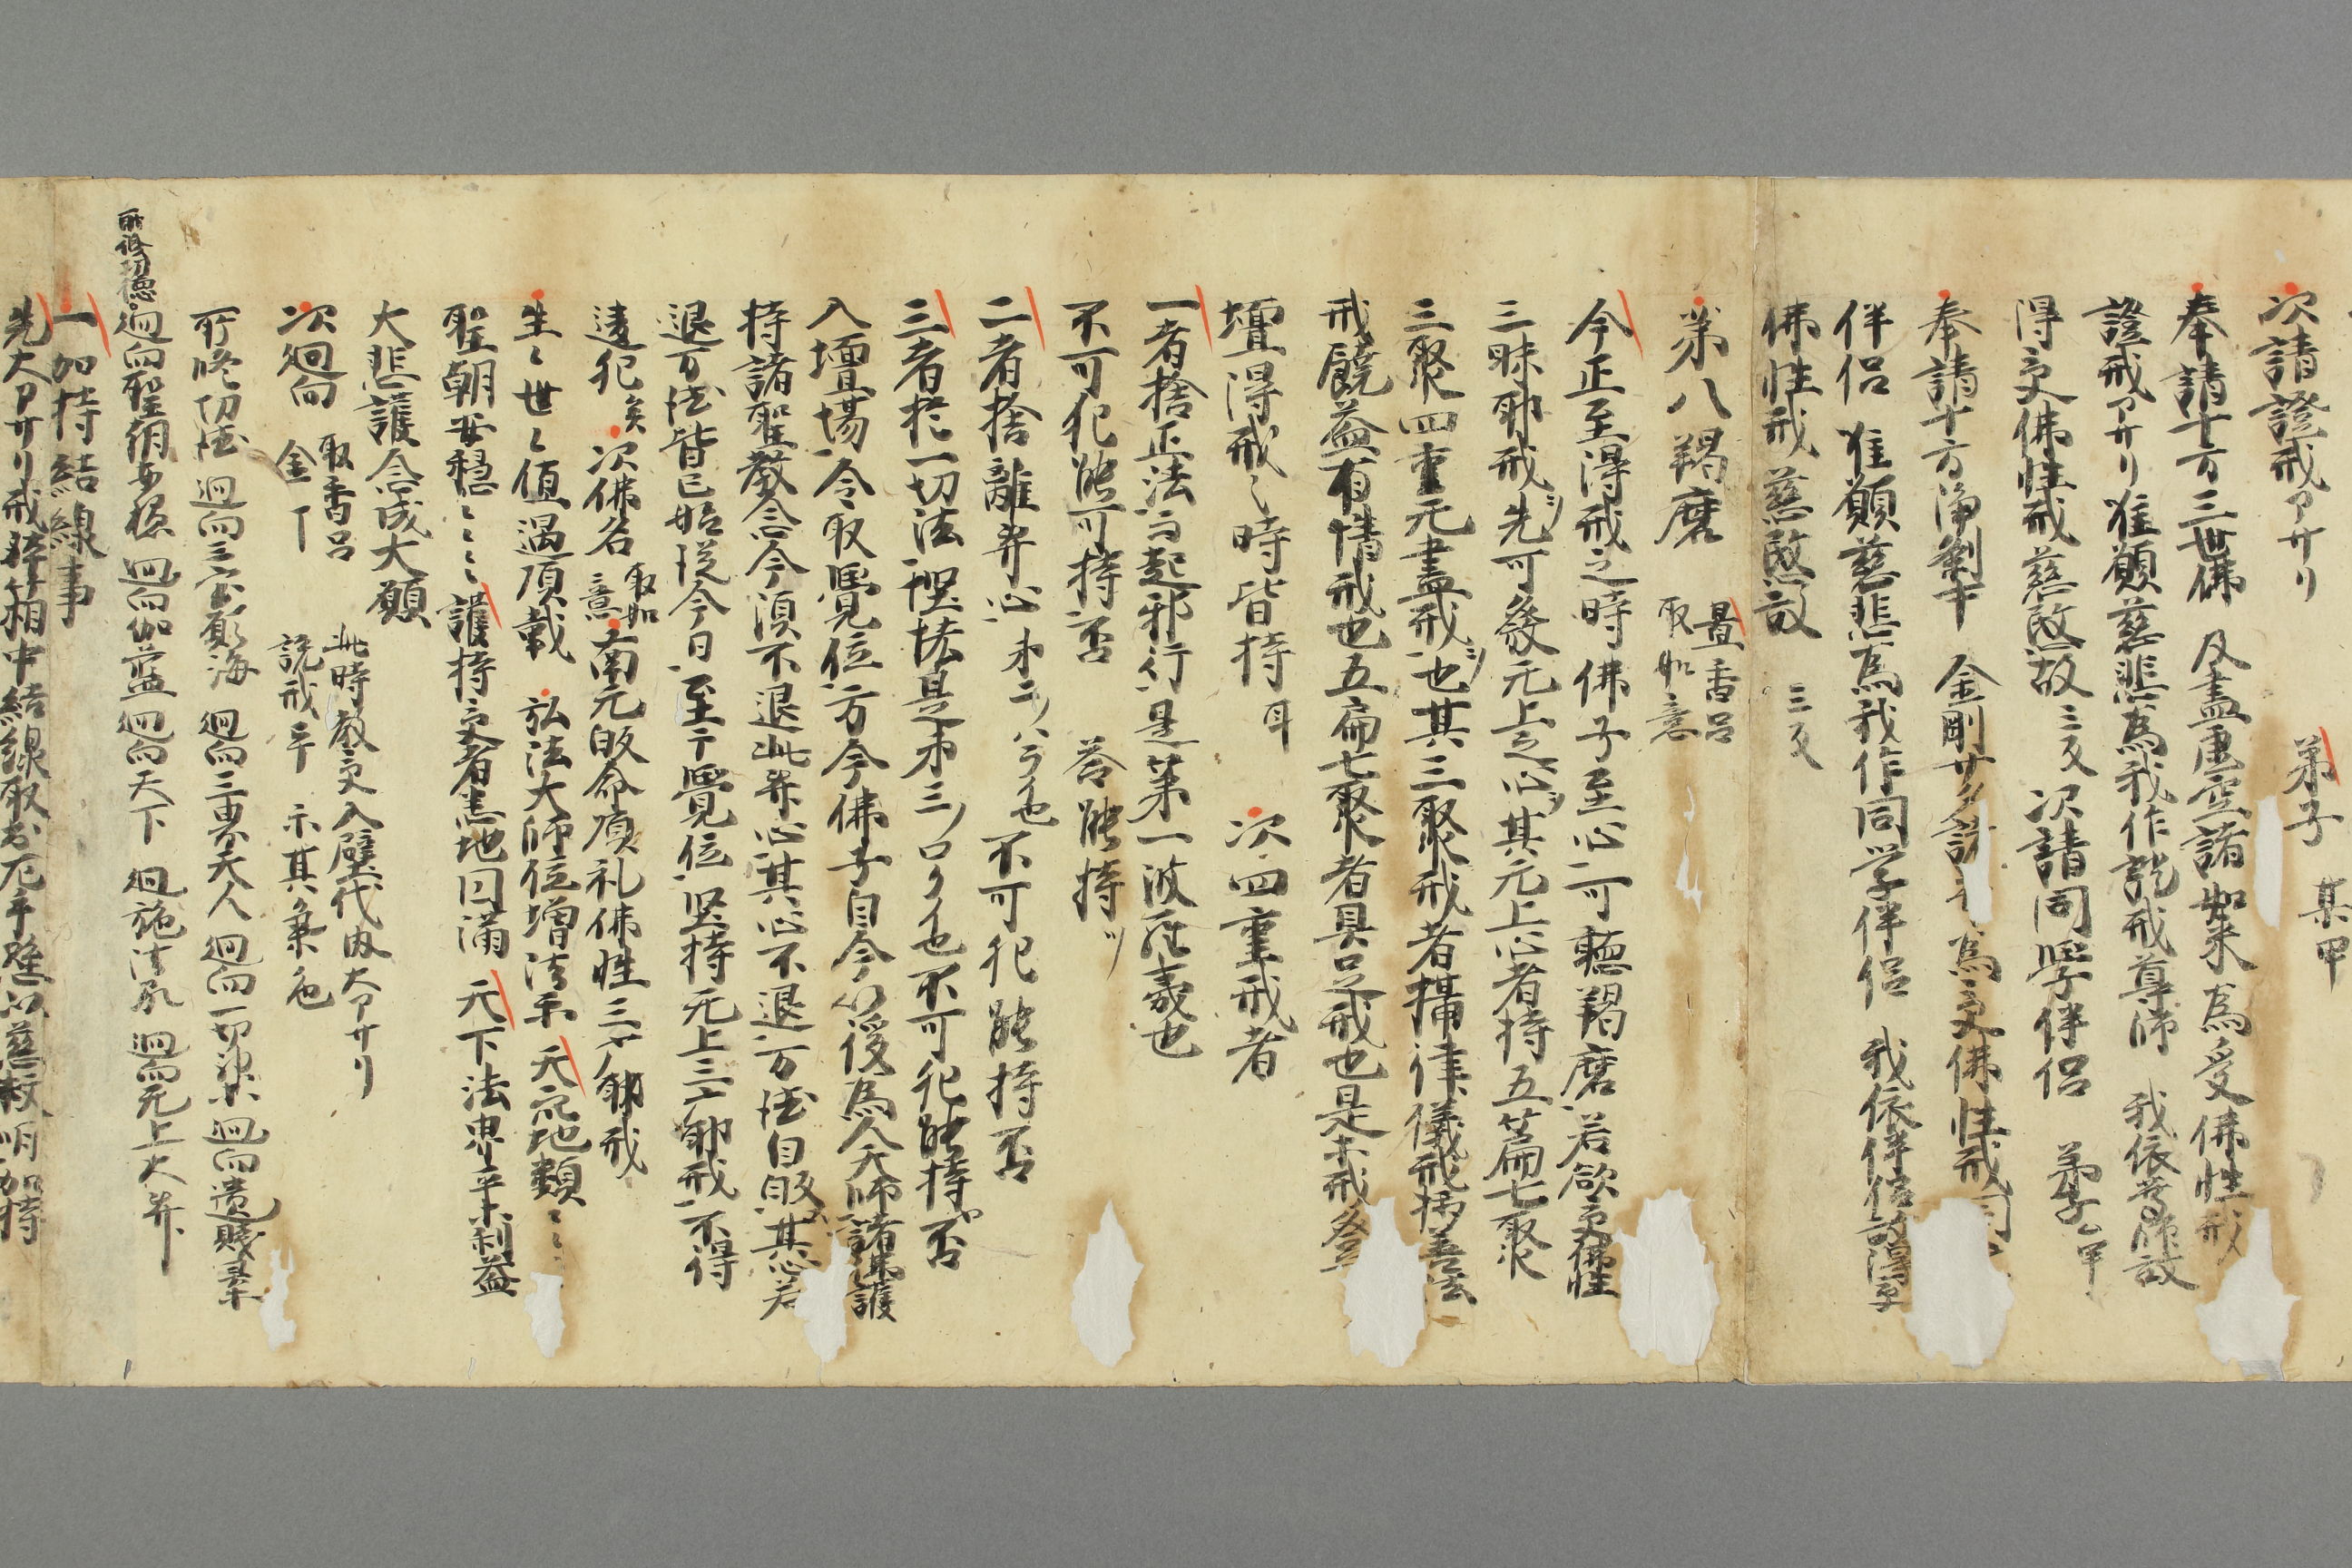 次請證戒アサリ 弟子 某甲
奉請十方三世佛 及盡虚空諸如來為受佛性戒
證戒アサリ 唯願慈悲為我作説戒尊師 我依尊師故
得受佛性戒慈愍故三反 次請同學伴侶 弟子ム甲
奉請十方淨刹中 金剛サタ諸 為受佛性戒同
伴侶 唯願慈悲為我作同学伴侶 我依伴侶故得受
佛性戒 慈愍故 三反
第八羯磨 置香呂 取如意
今正至得戒之時 佛子至心可聽羯磨 若欲受佛性
三昧耶戒 先可發无上之心 其无上心者持五篇七聚
三聚四重无盡戒也 其三聚戒者攝律儀戒攝善法
戒饒益有情戒也 五扁七聚者具足戒也 是等戒登
壇得戒之時皆持耳 次四重戒者
一者捨正法而起邪行 是第一波羅夷也
不可犯能可持否 答能持
二者捨離菩提心 第二ノハラ也 不可犯能持否
三者於一切法慳悋是第三ノハラ也 不可犯能持否
入壇場令取覺位 方今佛子自今以後為人天師諸佛護
持諸聖教 念今須不退此菩提心 其心不退万徳自
退万徳皆已 始從今日至于覺位堅持无上三昧耶戒 不得
違犯矣 次佛名 取如意 南无歸命頂礼佛性三昧耶戒
生々世々値遇頂戴 弘法大師位増法樂 天衆地類
聖朝安穏 護持受者悉地円滿 天下法界平等利益
大悲護念成大願
次廻向 取香呂 金丁 此時教受入壁代内大アサリ 説戒畢 示其氣色
所修功徳 廻向三宝願海 廻向三界天人 廻向一切 廻向遺賤等
所修功徳廻向聖朝安穏 廻向伽藍 廻向天下 廻施法界 廻向无上大菩提
一加持結線事
先大アサリ戒躰箱中結線取出左手懸以慈救明加持